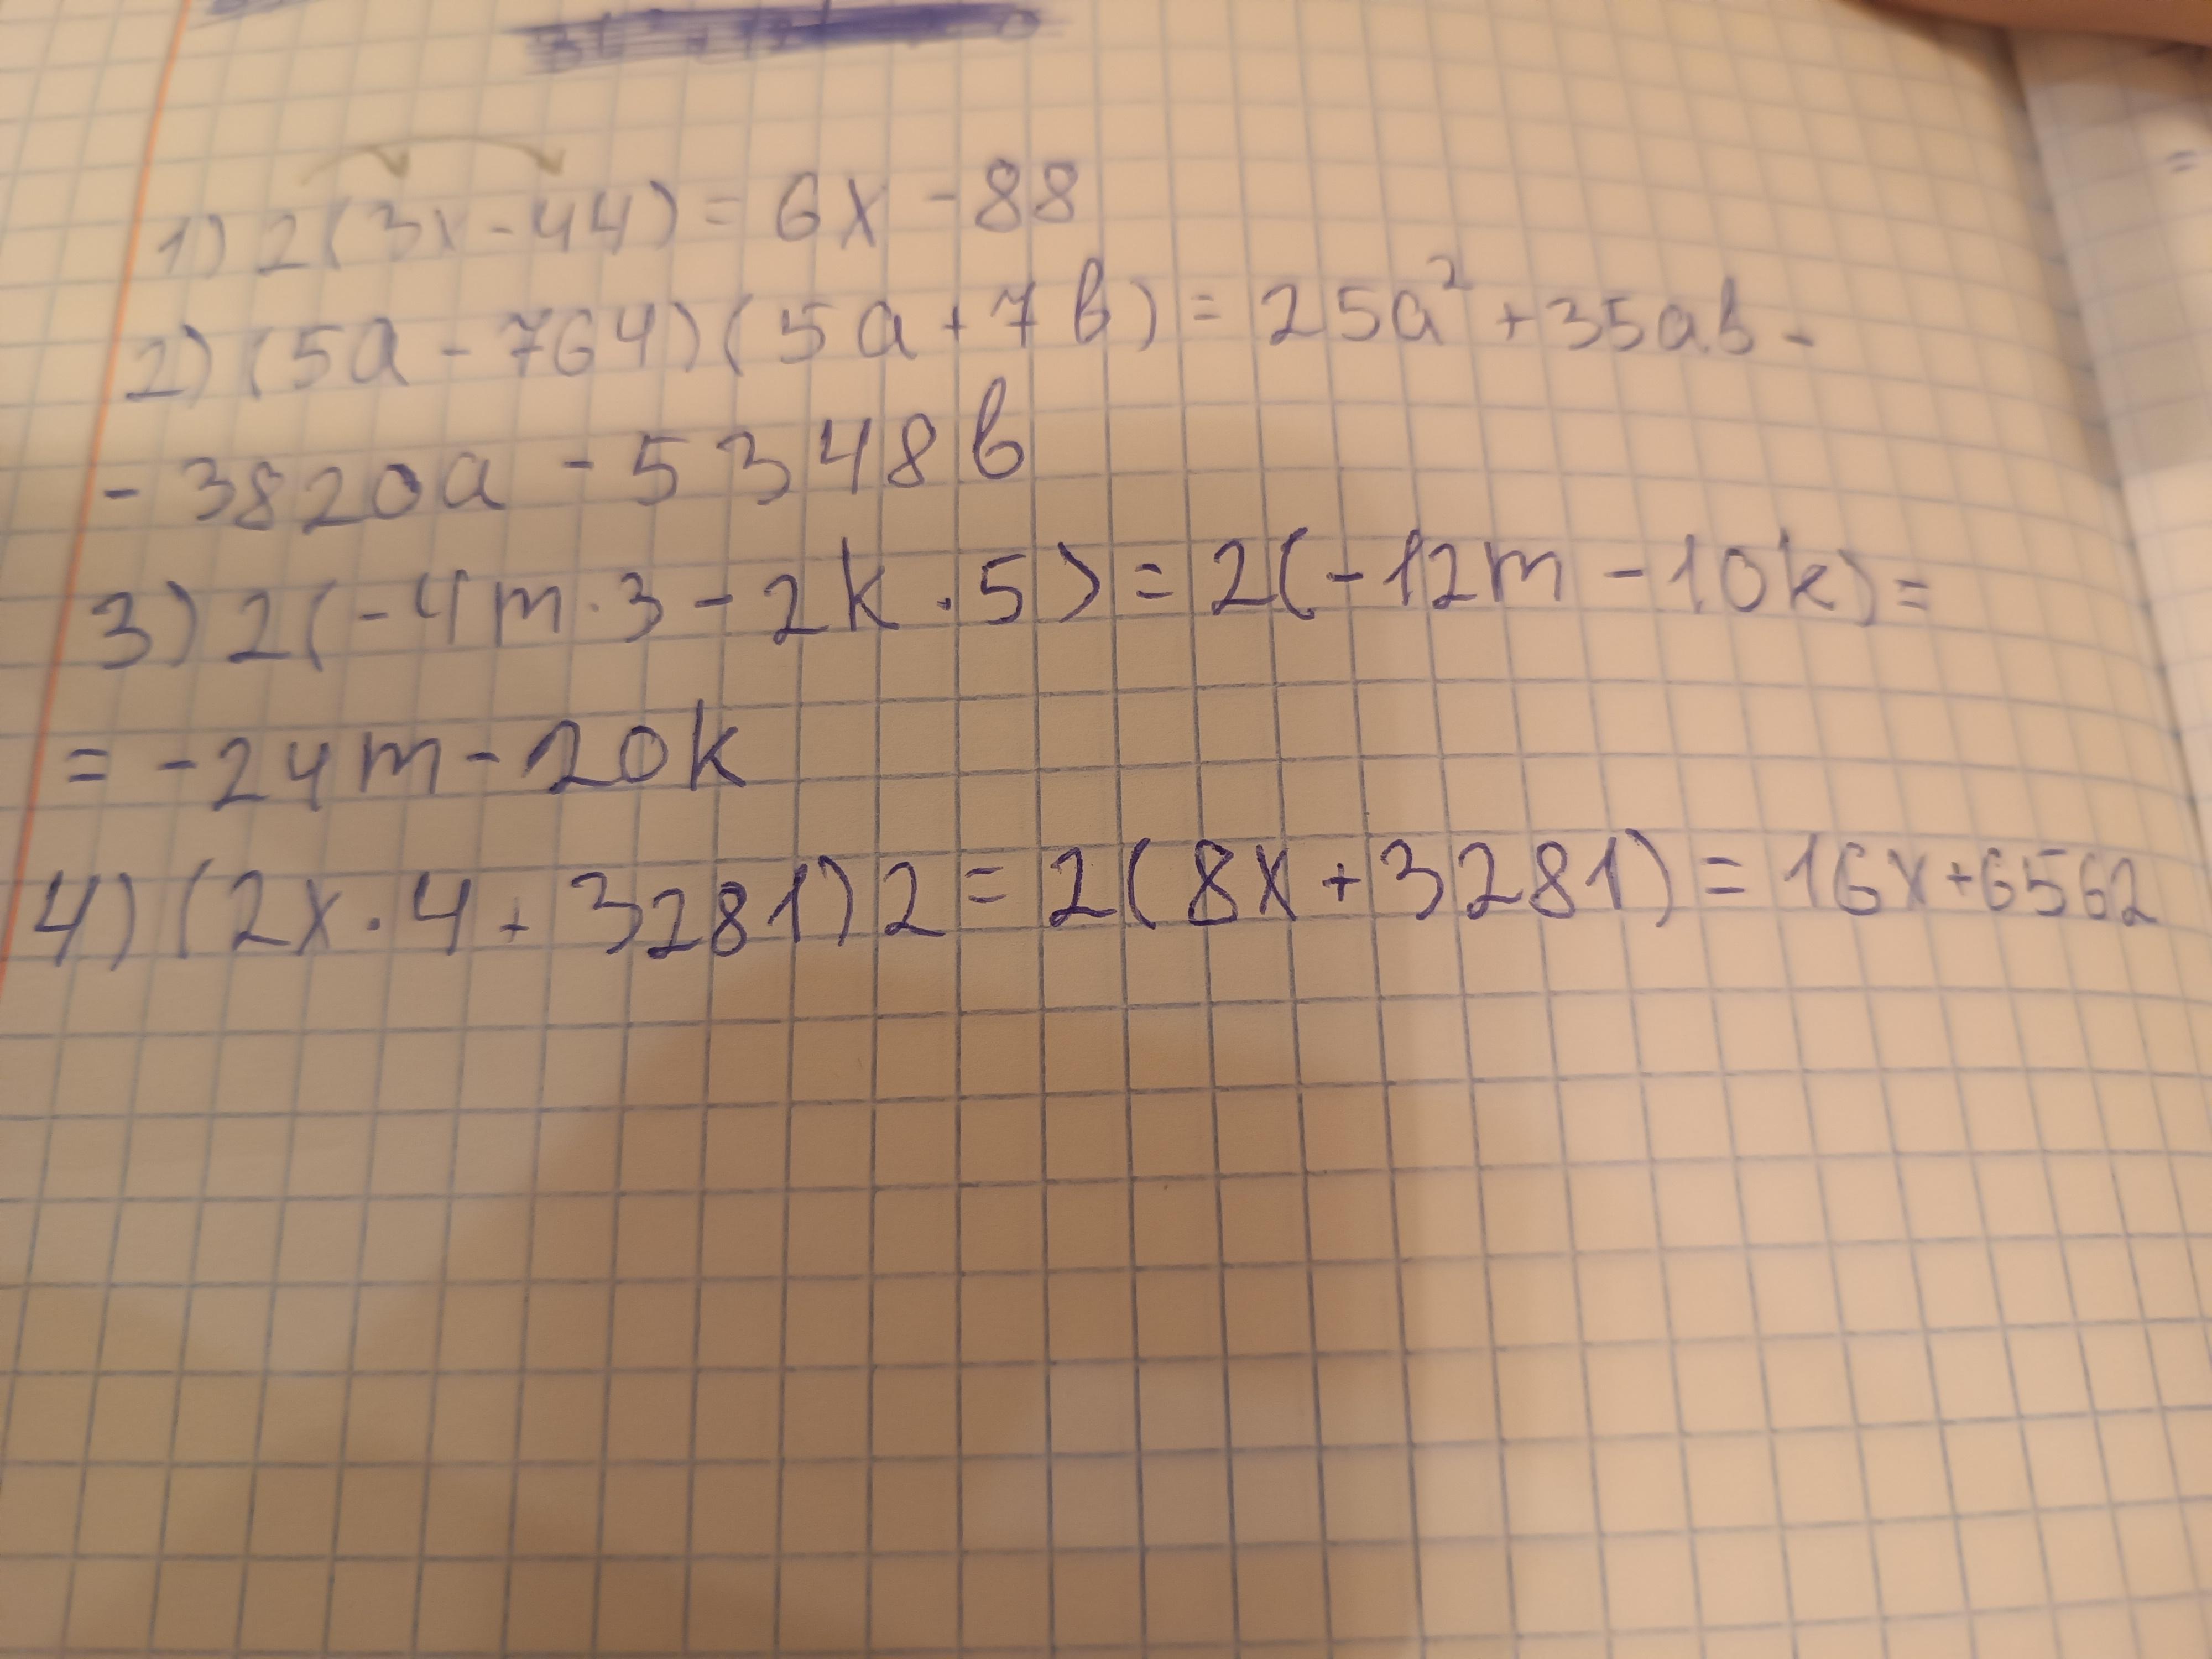 1) 2(3x-44) = 6x - 88
2) (5a - 764)(5a + 7b) = 25a² + 35ab -
- 3820a - 5348b
3) 2(-4m · 3 - 2k · 5) = 2(-12m - 10k) =
= -24m - 20k
4) (2x · 4 + 3281)2 = 2(8x + 3281) = 16x + 6562